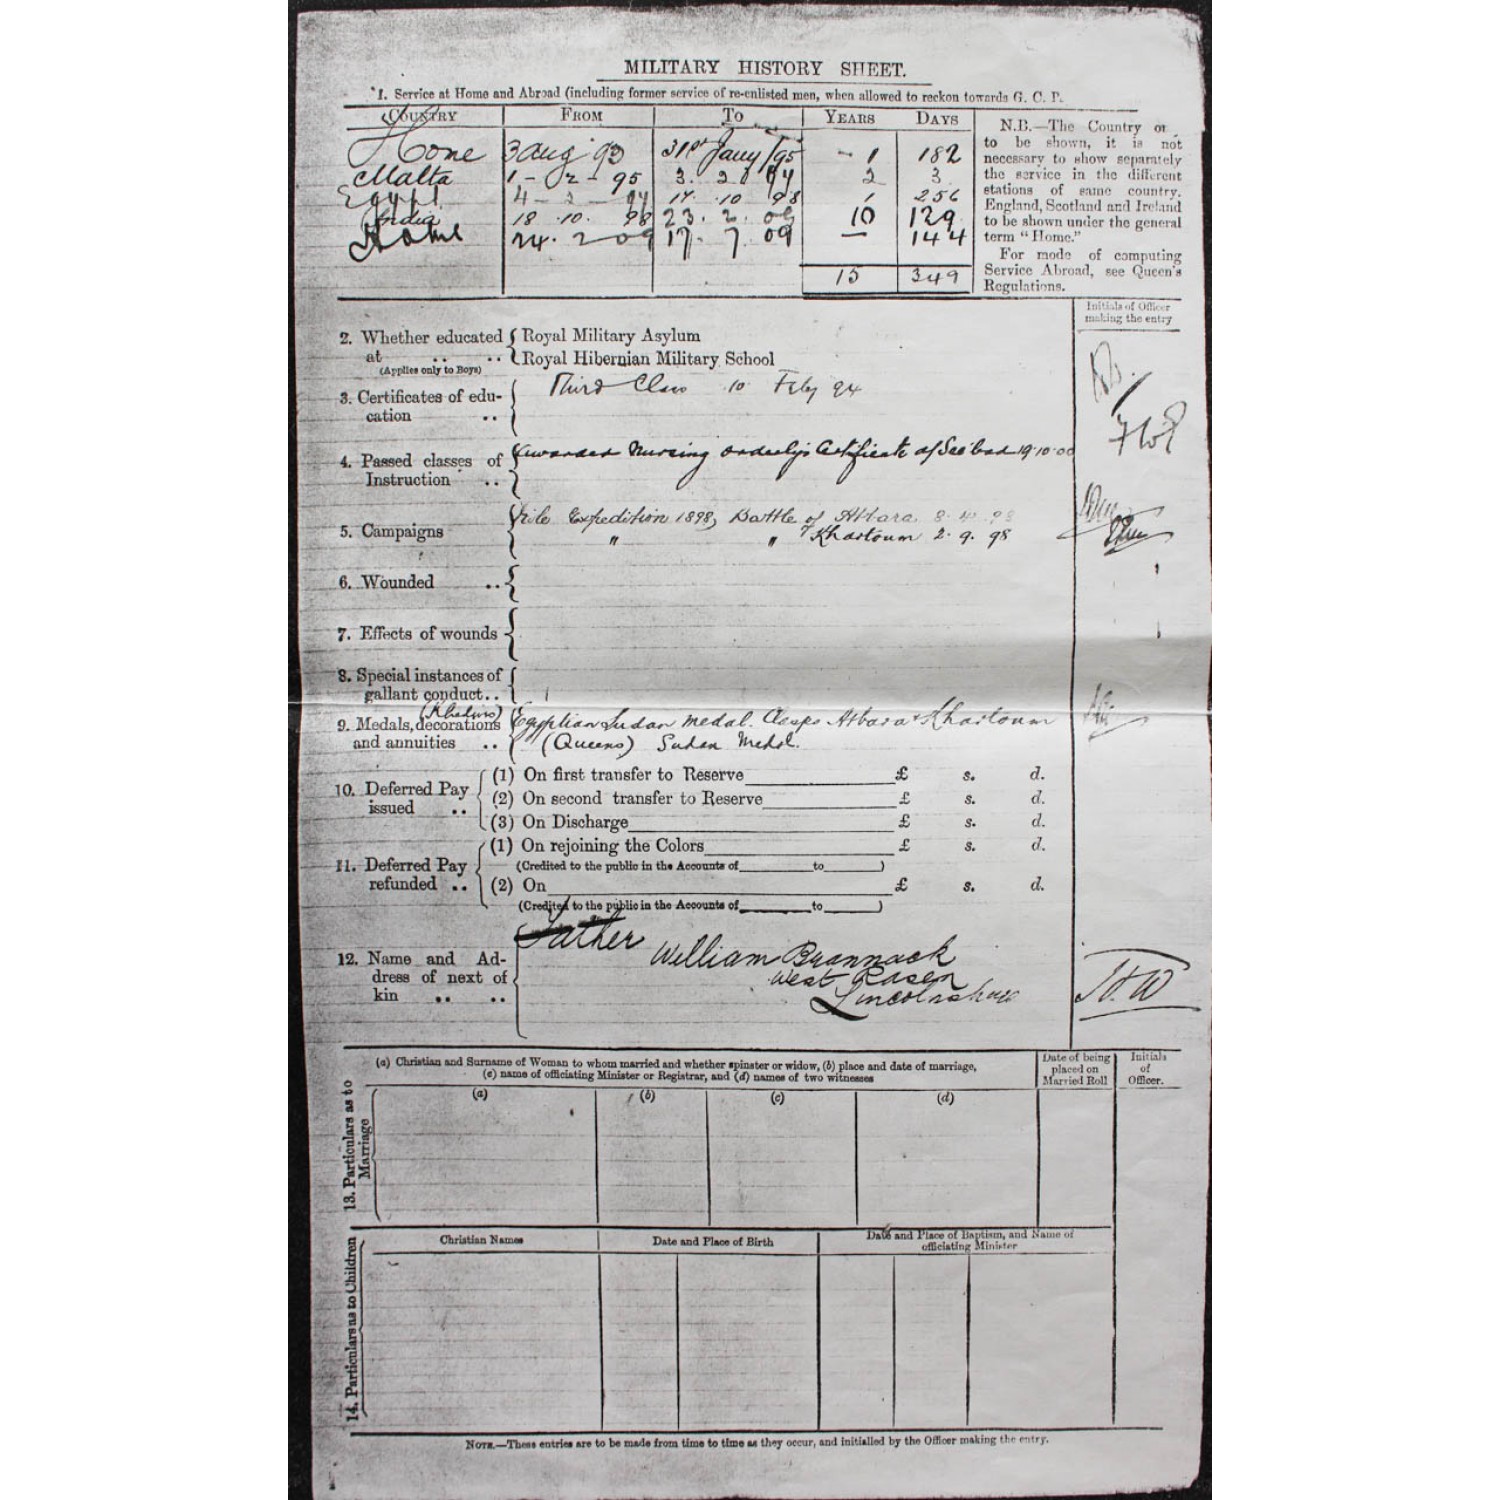 MILITARY HISTORY SHEET.
1. Service at Home and Abroad (including former service of re-enlisted men, when allowed to reckon towards G. C. P.
COUNTRY FROM TO YEARS DAYS
Home 3 Aug 93 31st Jany /95 - 1 182
Malta 1 - 2 - 95 3. 2 2 3
Egypt 4 - 2 - 17. 10 98 1 256
India 18 . 10. 98 23. 2. 09 10 129
Home 24. 2 09 17. 7. 09 — 144
15 349
N.B.—The Country
to be shown, it is not
necessary to show separately
the service in the different
stations of same country.
England, Scotland and Ireland
to be shown under the general
term "Home."
For mode of computing
Service Abroad, see Queen's
Regulations.
Initials of Officer
making the entry
2. Whether educated at .. .. (Applies only to Boys)
Royal Military Asylum
Royal Hibernian Military School
3. Certificates of edu-
cation ..
Third Class 10 Feby 94
4. Passed classes of
Instruction ..
Awarded Nursing orderly's Certificate at 19.10.00
5. Campaigns
Nile Expedition 1898, Battle of Atbara 8. 4. 98
" " of Khartoum 2. 9. 98
6. Wounded ..
7. Effects of wounds
8. Special instances of
gallant conduct..
9. Medals, decorations
and annuities ..
(Khedives)
Egyptian Sudan medal. Clasps Atbara & Khartoum
(Queens) Sudan Medal.
10. Deferred Pay
issued ..
(1) On first transfer to Reserve £ s. d.
(2) On second transfer to Reserve £ s. d.
(3) On Discharge £ s. d.
11. Deferred Pay
refunded ..
(1) On rejoining the Colors £ s. d.
(Credited to the public in the Accounts of to )
(2) On £ s. d.
(Credited to the public in the Accounts of to )
12. Name and Ad-
dress of next of
kin .. ..
Father William Brannack
West Rasen
Lincolnshire
H.W
13. Particulars as to
Marriage
(a) Christian and Surname of Woman to whom married and whether spinster or widow, (b) place and date of marriage,
(c) name of officiating Minister or Registrar, and (d) names of two witnesses
Date of being
placed on
Married Roll
Initials
of
Officer.
(a) (b) (c) (d)
14. Particulars as to Children
Christian Names Date and Place of Birth
Date and Place of Baptism, and Name of
officiating Minister
NOTE.—These entries are to be made from time to time as they occur, and initialled by the Officer making the entry.